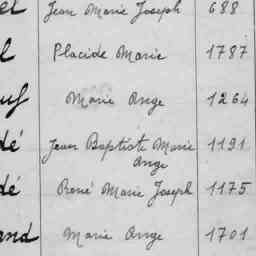 el Jean Marie Joseph 688
l Placide Marie 1787
uf Marie Ange 1264
dé Jean Baptiste Marie 1191
Ange
dé René Marie Joseph 1175
and Marie Ange 1701